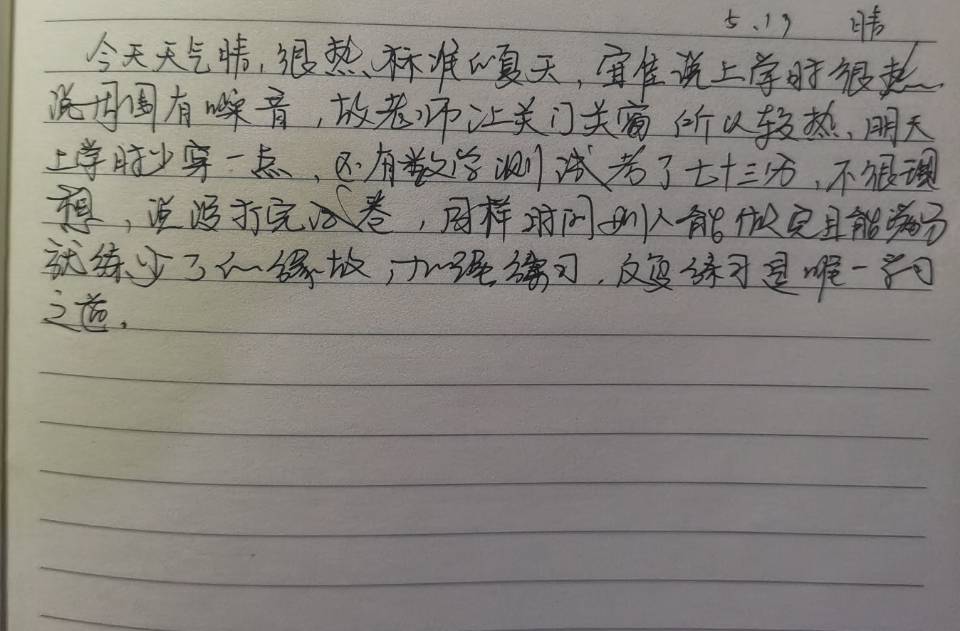 5.19 晴
今天天气晴,很热、标准的夏天,宜佳说上学时很热
说周围有噪音,故老师让关门关窗 所以较热、明天
上学时少穿一点,还有数学测试考了七十三分,不很理
想,说没打完试卷,同样时间别人能做完且能满分
就练少了的缘故,加强练习,反复练习是唯一学习
之道。